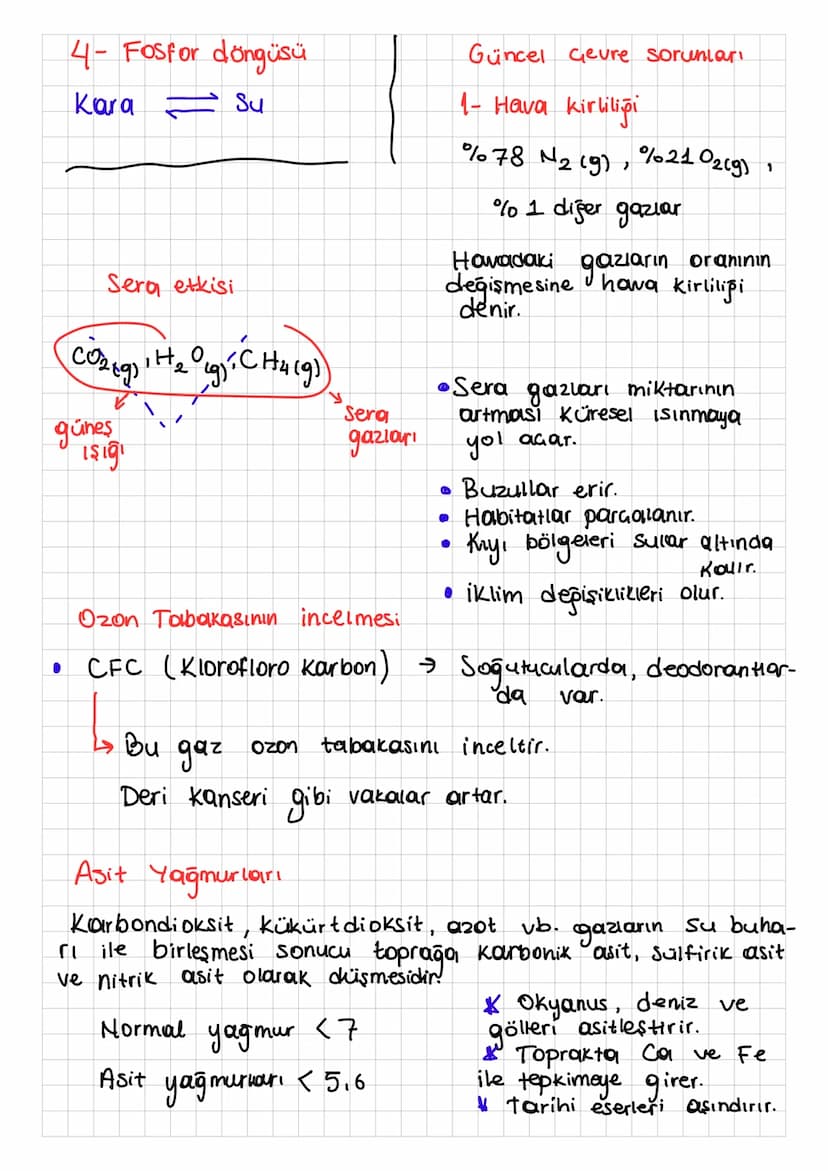 4- Fosfor döngüsü
Kara ⇌ Su
Güncel Çevre sorunları
1- Hava kirliliği
%78 N2 (g), %21 O2(g),
%1 diğer gazlar
Havadaki gazların oranının
değişmesine hava kirliliği
denir.
Sera etkisi
CO2(g), H2O(g), CH4(g)
güneş
ışığı
Sera
gazları
• Sera gazları miktarının
artması küresel ısınmaya
yol açar.
• Buzullar erir.
• Habitatlar parçalanır.
• Kıyı bölgeleri sular altında
kalır.
• iklim değişiklikleri olur.
Ozon Tabakasının incelmesi
• CFC (Klorofloro karbon) → Soğutucularda, deodorantlar-
da var.
↳ Bu gaz ozon tabakasını inceltir.
Deri kanseri gibi vakalar artar.
Asit Yağmurları
Karbondioksit, kükürtdioksit, azot vb. gazların su buha-
rı ile birleşmesi sonucu toprağa karbonik asit, sülfirik asit
ve nitrik asit olarak düşmesidir.
Normal yağmur < 7
Asit yağmurları < 5,6
* Okyanus, deniz ve
gölleri asitleştirir.
* Toprakta Ca ve Fe
ile tepkimeye girer.
* Tarihi eserleri aşındırır.